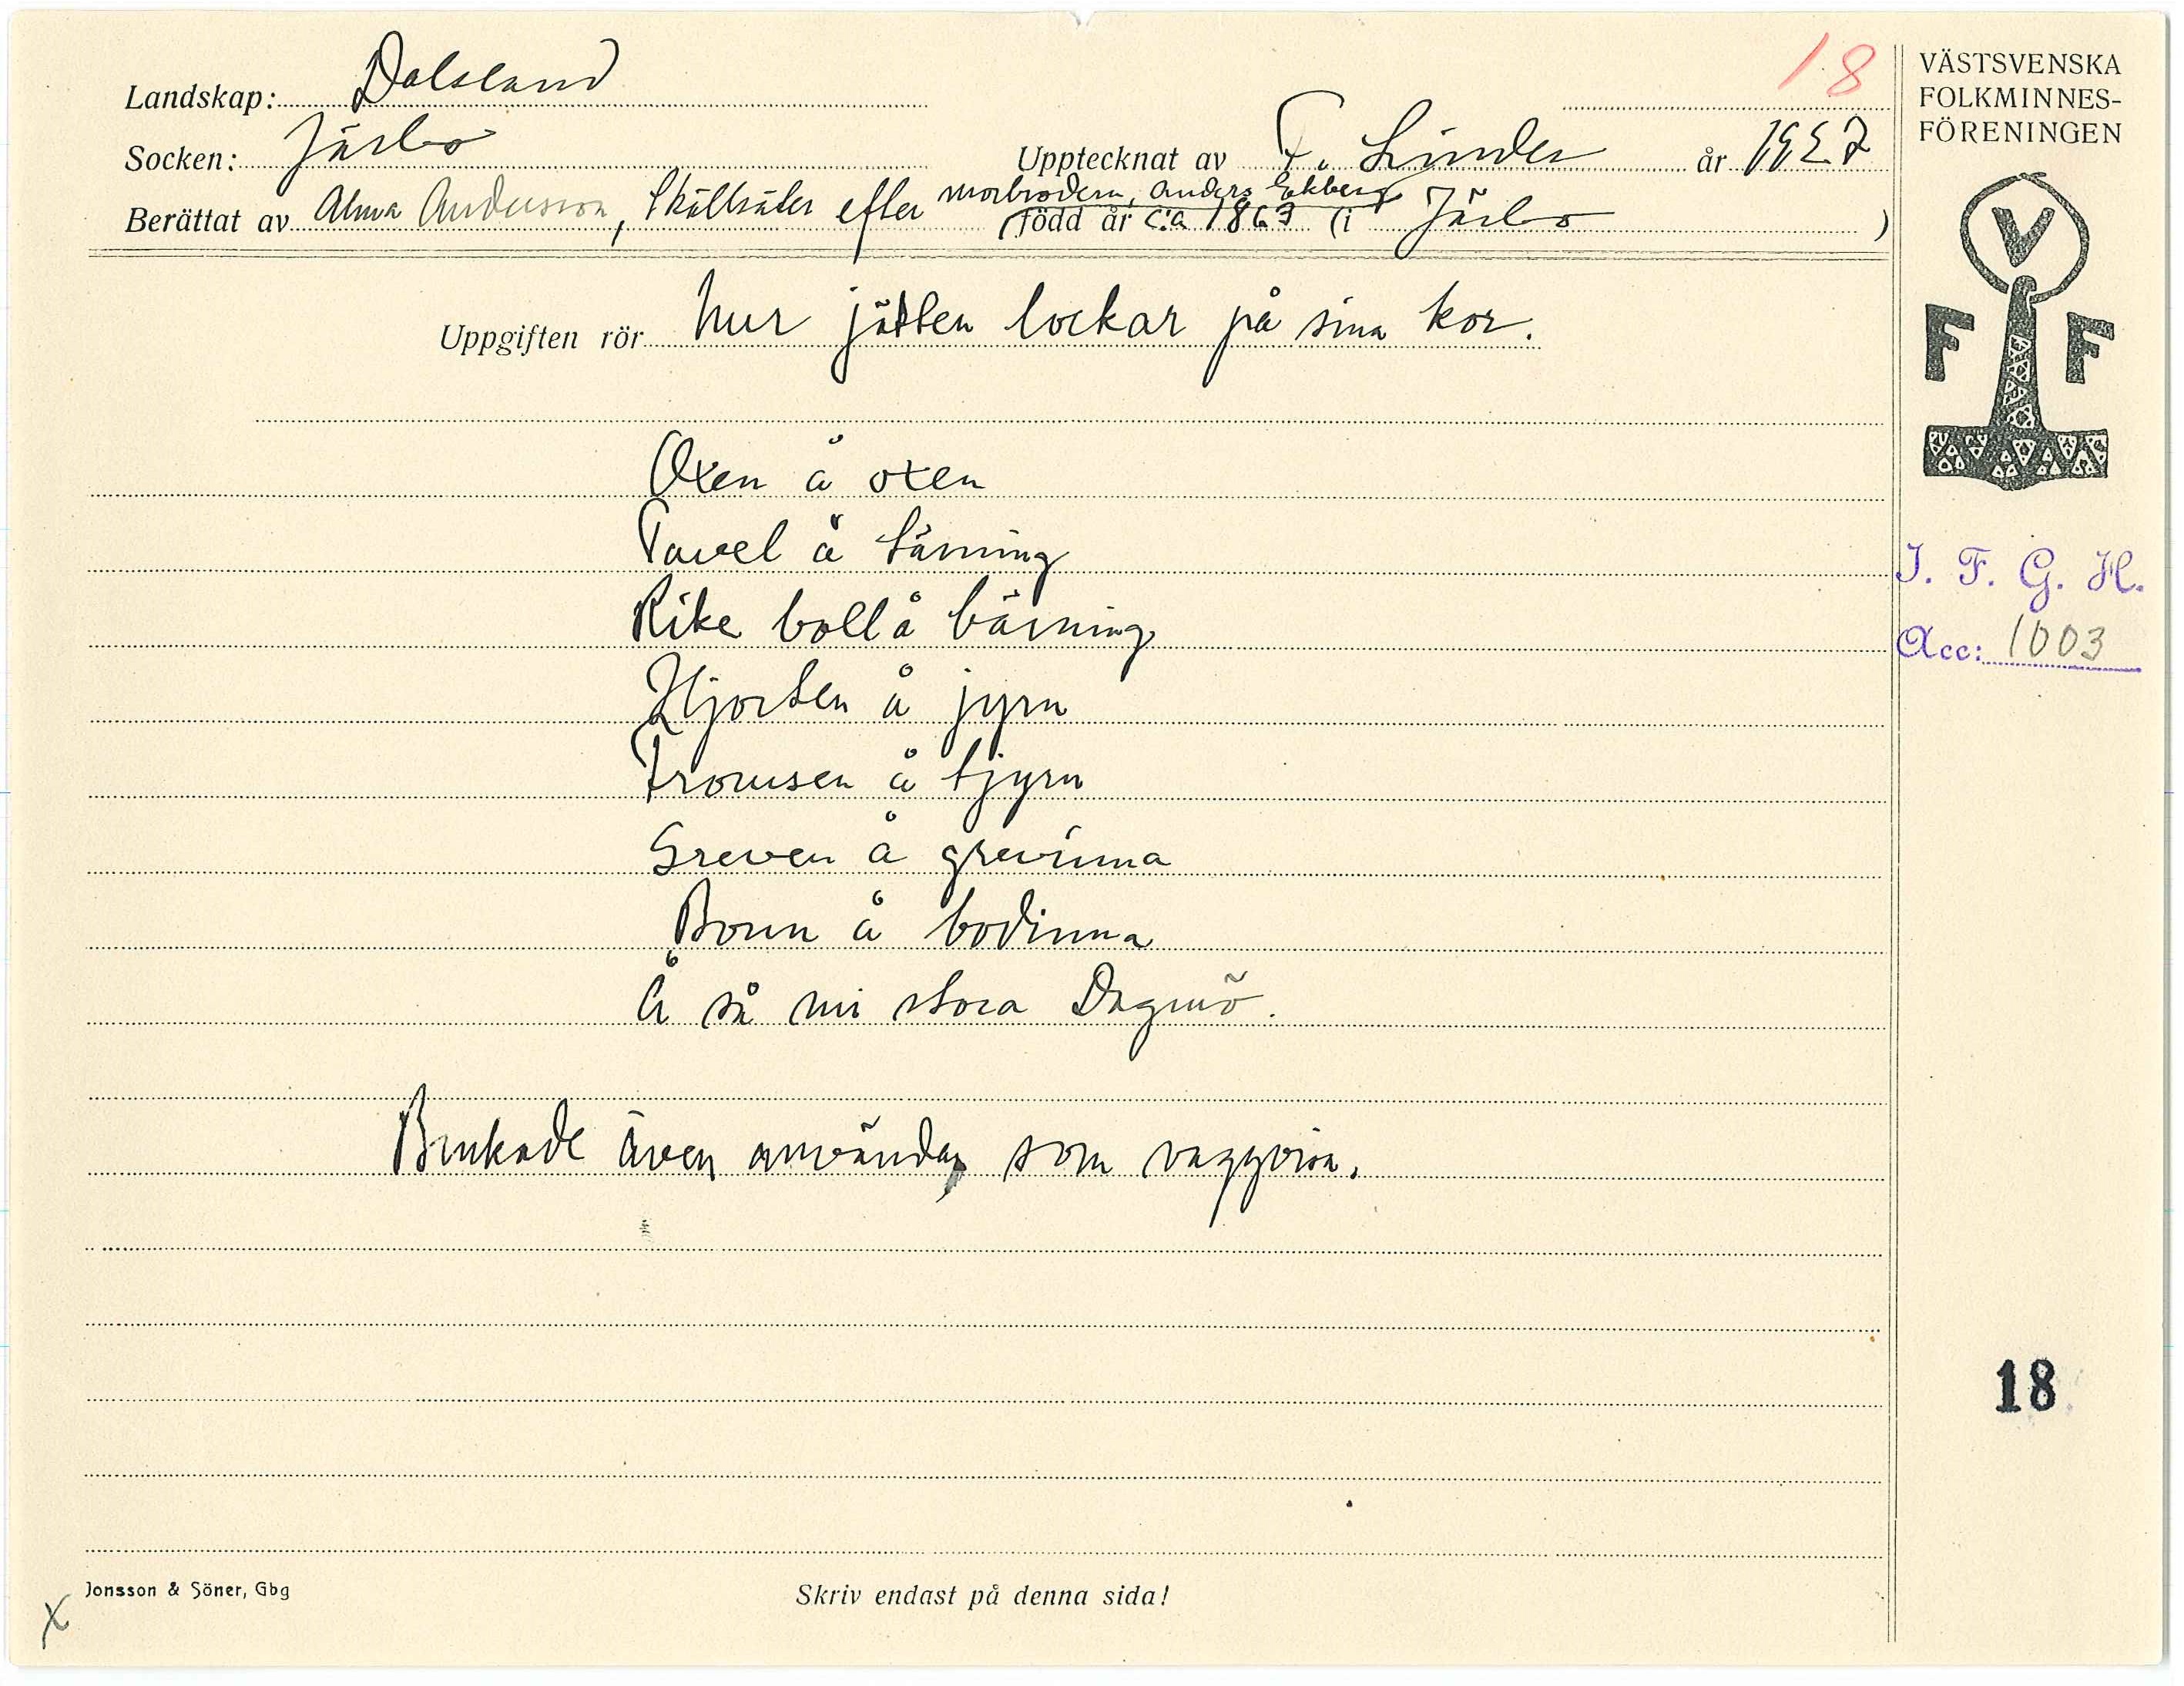 18
VÄSTSVENSKA
FOLKMINNES-
FÖRENINGEN
Landskap: Dalsland
Socken: Järbo
Upptecknat av F. Linder år 1927
Berättat av Alma Andersson, Skällsäter efter morbrodern, Anders Ekberg
född år c:a 1863 (i Järbo)
V
F F
Uppgiften rör hur jätten lockar på sina kor.
Oxen å oxen
Tavel å tärning
Rike boll å bärning
Hjorten å jyrn
Trousen å tjyrn
Greven å grevinna
Bonn å bodinna
Å så mi stora Dagmö.
Brukade även användas som vaggvisa.
I. F. G. H.
Acc: 1003
18
Jonsson & Söner, Gbg
Skriv endast på denna sida!
X